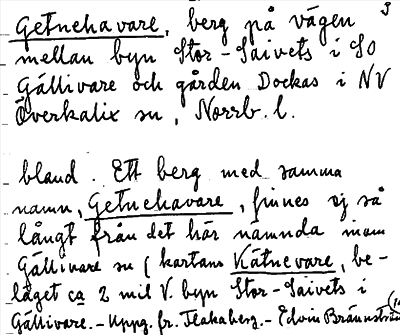 Getnehavare, berg på vägen 3
mellan byn Stor-Saivets i SO
Gällivare och gården Dockas i NV
Överkalix sn, Norrb. l.
bland. Ett berg med samma
namn, Getnehavare, finnes ej så
långt från det här nämnda inom
Gällivare sn (kartans Kätnevare, be-
läget ca 2 mil V. byn Stor-Saivets i
Gällivare. - Uppg. fr. Flakaberg. - Edvin Brännström